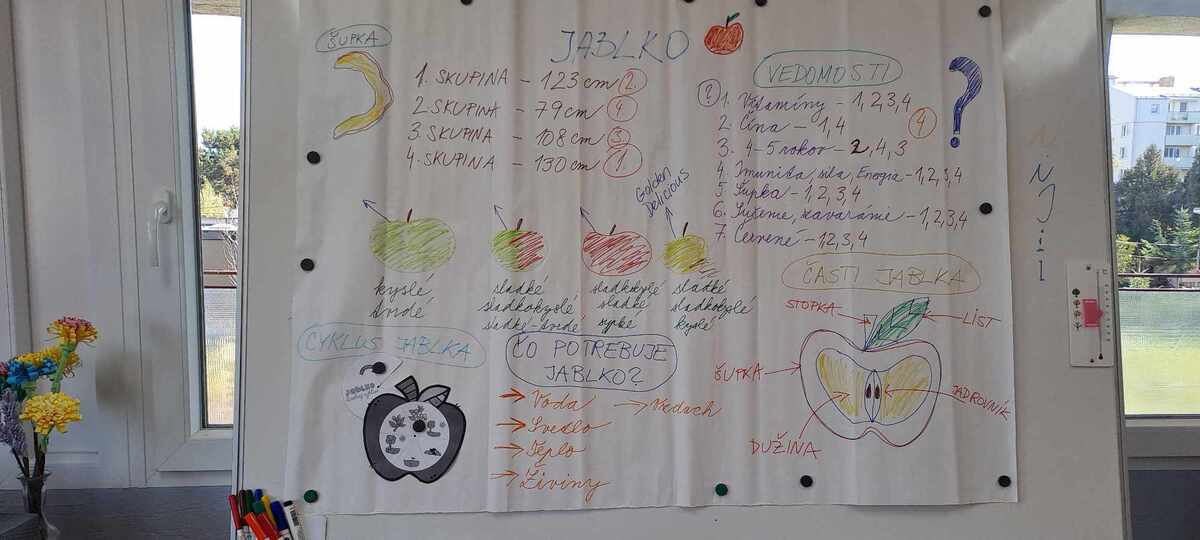 JABLKO
ŠUPKA
1. SKUPINA - 123 cm 2.
2. SKUPINA - 79 cm 4
3. SKUPINA - 108 cm 3
4. SKUPINA - 130 cm 1.
VEDOMOSTI
? 1. Vitamíny - 1, 2, 3, 4
2. Čína - 1, 4 4
3. 4-5 rokov - 2, 4, 3
4. Imunita, sila, Energia - 1, 2, 3, 4
5 Šupka - 1, 2, 3, 4
6. Sušenie, zaváranie - 1, 2, 3, 4
7. Červené - 1, 2, 3, 4
?
Golden
Delicious
kyslé
tvrdé
sladké
sladkokyslé
sladké-tvrdé
sladkokyslé
sladké
sypké
sladké
sladkokyslé
kyslé
CYKLUS JABLKA
JABLKO
ČO POTREBUJE
JABLKO?
→ Voda → Vzduch
→ Svetlo
→ Teplo
→ Živiny
ČASTI JABLKA
STOPKA
LIST
ŠUPKA
JADROVNÍK
DUŽINA